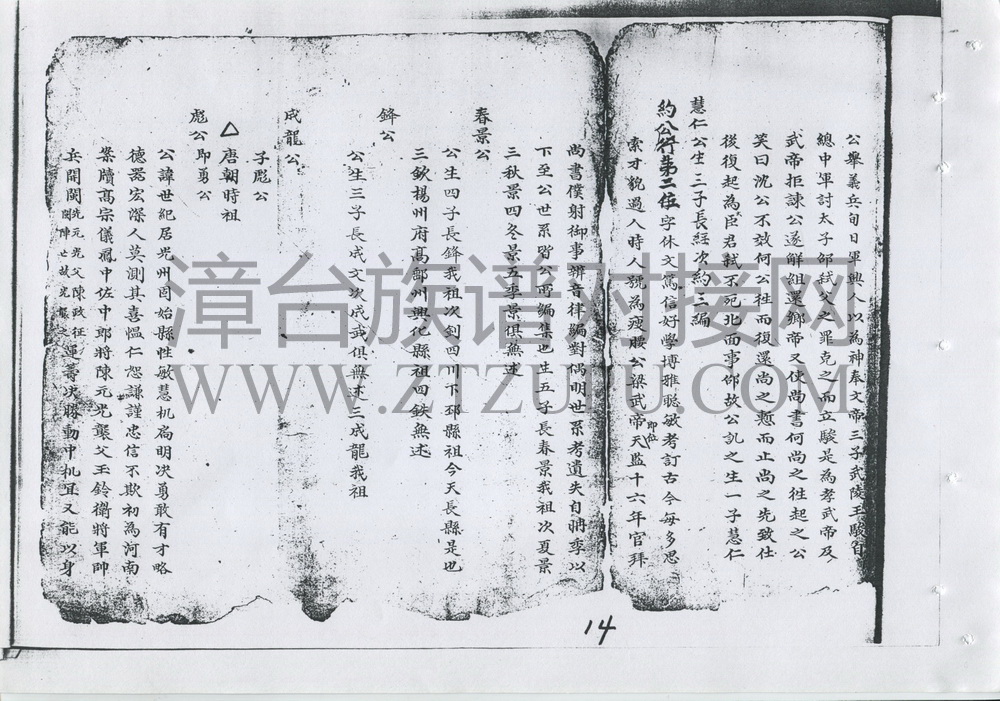 公舉義兵旬日軍興人以為神奉文帝三子武陵王駿自
總中軍討太子邵弒父之罪克之而立駿是為孝武帝及
武帝拒諫公遂解組還鄉帝又使尚書何尚之往起之公
笑曰沈公不效何公往而復還尚之慙而止尚之先致仕
後復起為臣君弒不死北面事仇故公訊之生一子慧仁
慧仁公生三子長經次約三編
約公行第二位字休文篤信好學博雅聰敏考訂古今每多思
索才貌過人時人號為瘦腰公梁武帝即位天監十六年官拜
尚書僕射御事辨音律騙對偶明世系考遺失自聃季以
下至公世系皆公而編集也生五子長春景我祖次夏景
三秋景四冬景五季景俱無述
春景公
公生四子長鋒我祖次釗四川下邳縣祖今天長縣是也
三欽揚州府高郵州興化縣祖四鉄無述
鋒公
公生三子長成文次成武俱無述三成龍我祖
成龍公
子彪公
△唐朝時祖
彪公即勇公
公諱世紀居光州固始縣性敏慧机扃明决勇敢有才略
德器宏深人莫測其喜慍仁恕謙謹忠信不欺初為河南
案牘高宗儀鳳中佐中郎將陳元光襲父玉鈐衛將軍帥
兵開閩先元光父陳政征閩陣亡故光襲之運籌决勝動中机宜又能以身
14
漳台族谱对接网
WWW.ZTZUPU.COM